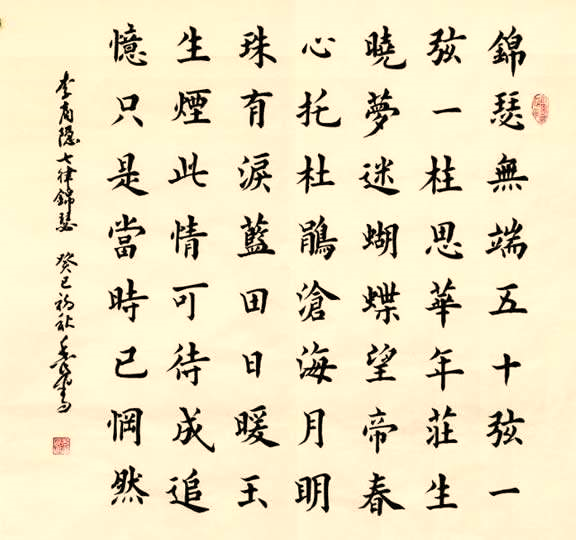 錦瑟無端五十弦一
弦一柱思華年莊生
曉夢迷蝴蝶望帝春
心托杜鵑滄海月明
珠有淚藍田日暖玉
生煙此情可待成追
憶只是當時已惘然
李商隐七律錦瑟 癸巳初秋